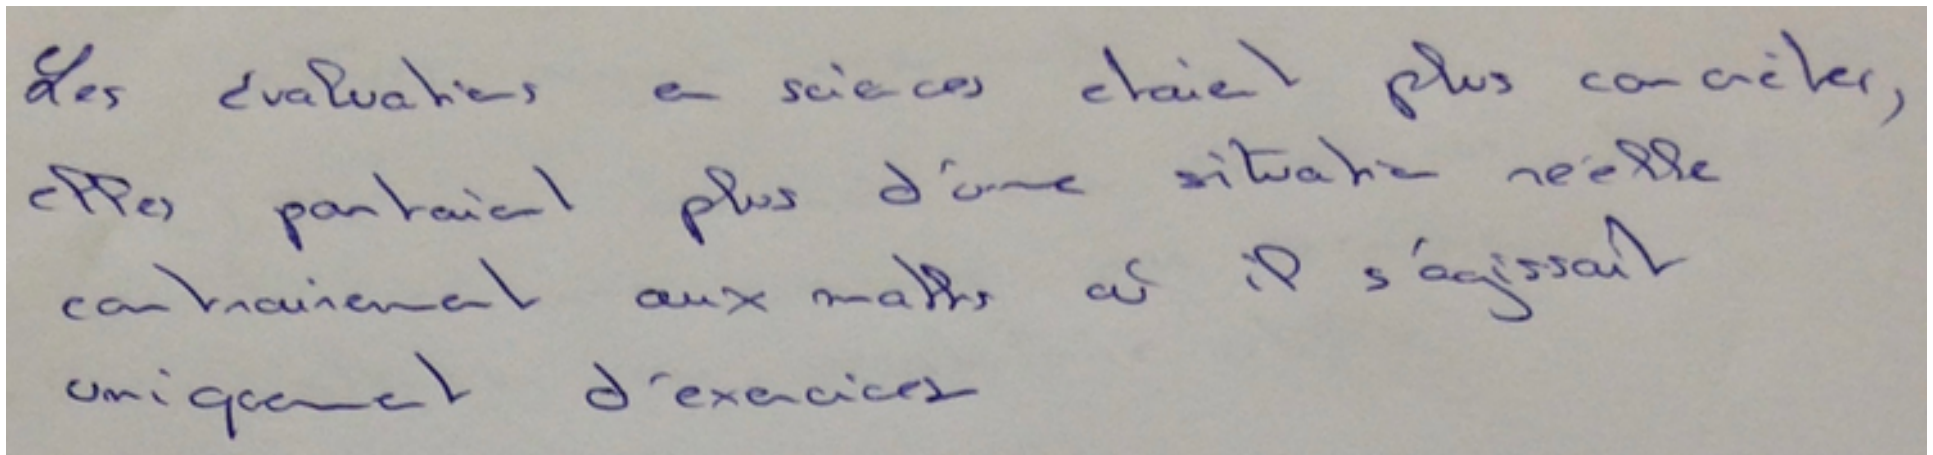 Les évaluations en sciences etaient plus concrètes,
elles partaient plus d'une situation réelle
contrairement aux maths où il s'agissait
uniquement d'exercices